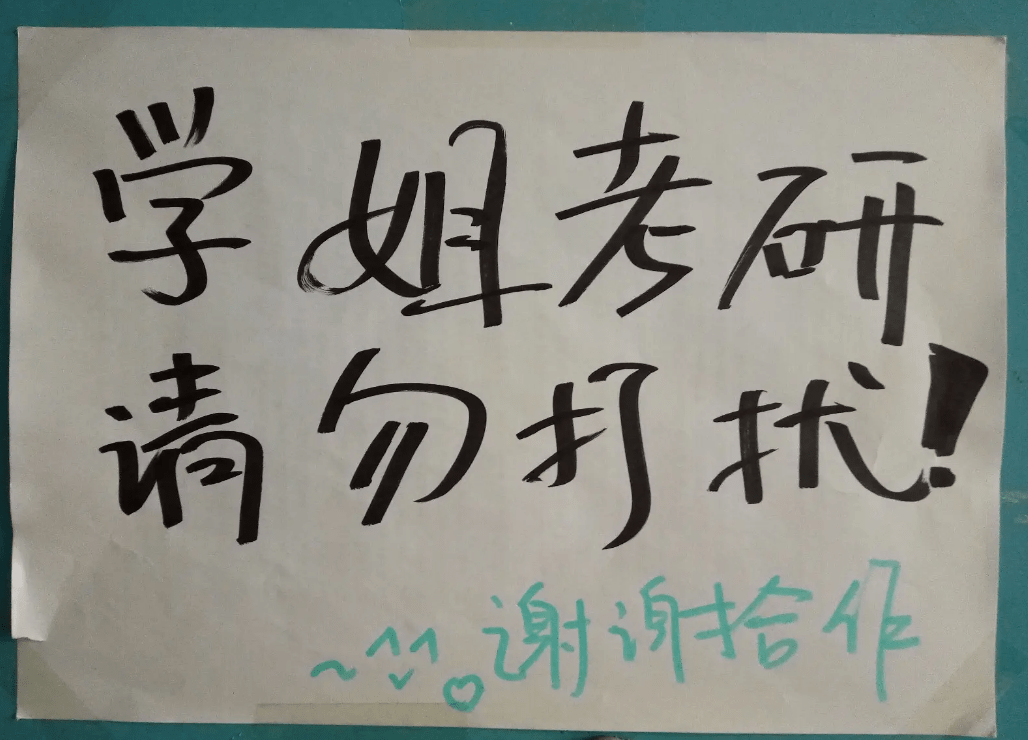 学姐考研
请勿打扰!
~^v^♡谢谢拾作